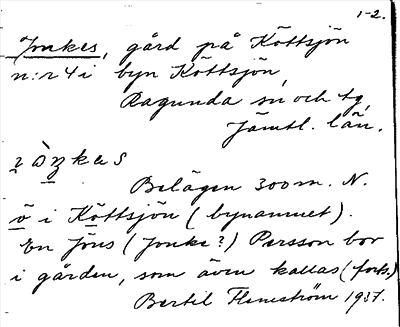 1-2.
Jonkes, gård på Köttsjön
n:r 4 i byn Köttsjön,
Ragunda sn och tg,
Jämtl. län.
Belägen 300 m. N.
ö i Köttsjön (bynamnet).
En Jöns (Jonke?) Persson bor
i gården, som även kallas (forts.)
Bertil Flemström 1937.